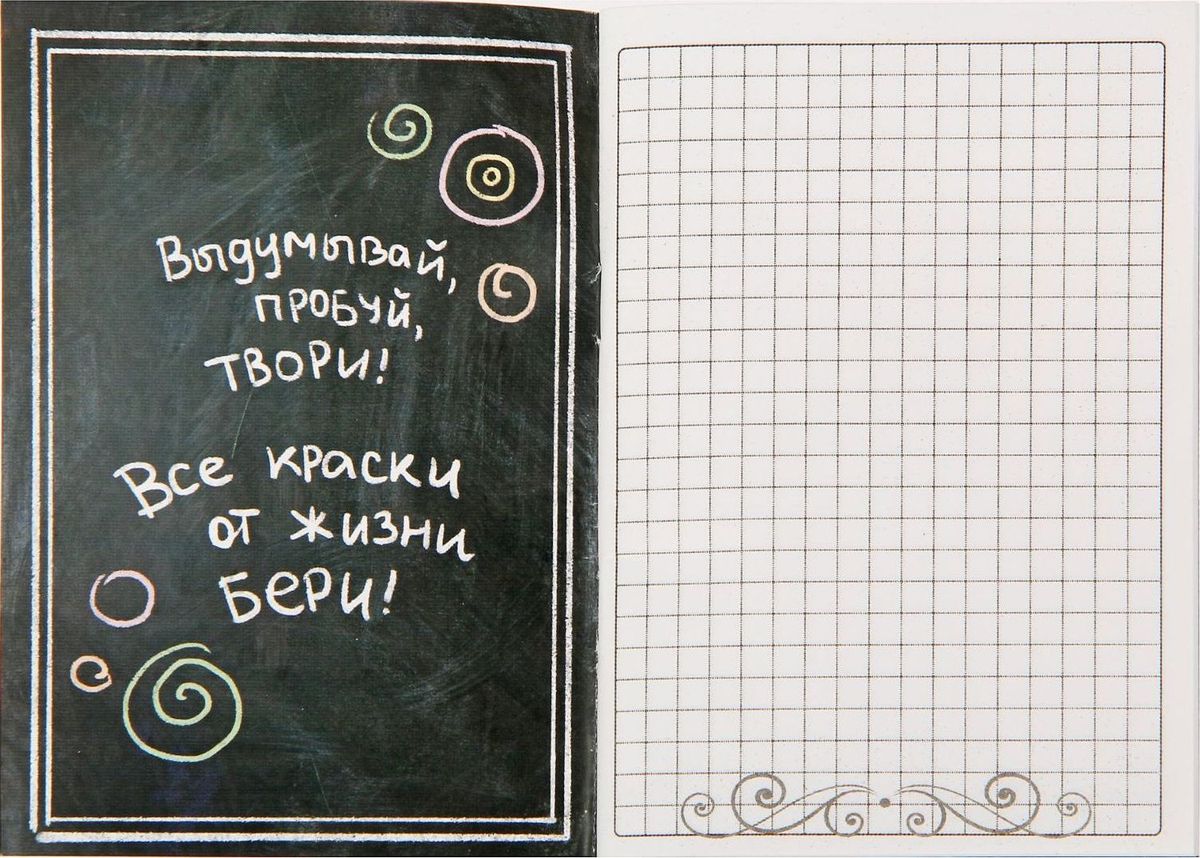 Выдумывай,
пробуй,
твори!
Все краски
от жизни
бери!